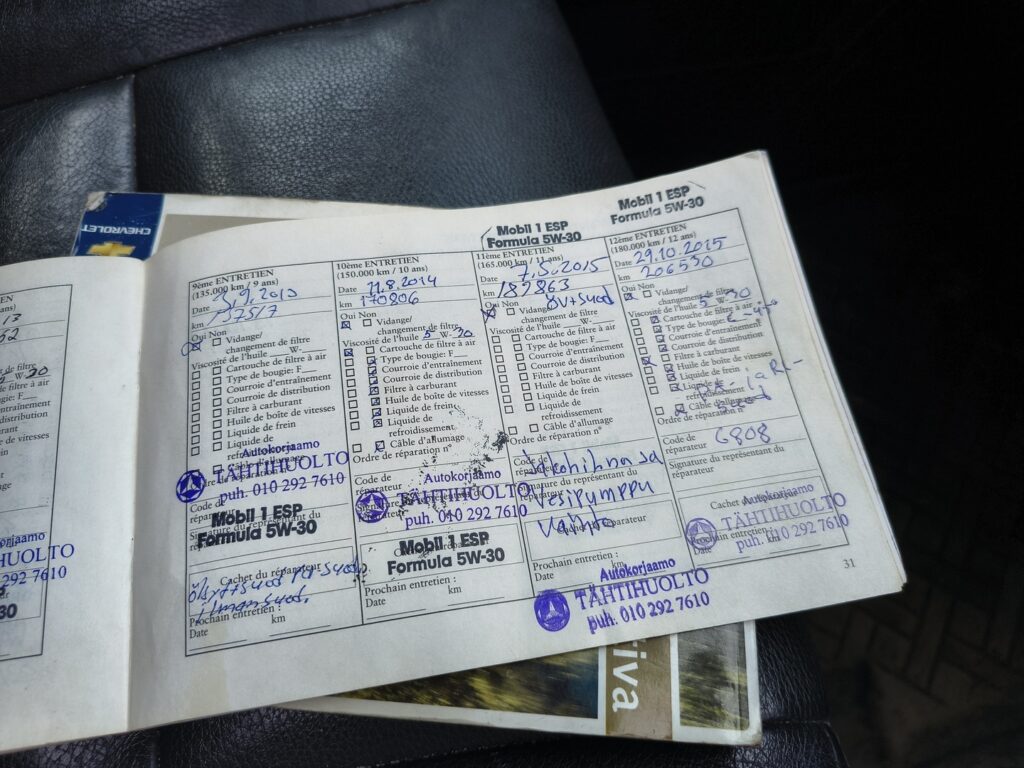 CHEVROLET
9ème ENTRETIEN
(135.000 km / 9 ans)
Date 3.9.2013
km 137517
Oui Non
Vidange/
changement de filtre
Viscosité de l'huile __W-__
Cartouche de filtre à air
Type de bougie: F__
Courroie d'entraînement
Courroie de distribution
Filtre à carburant
Huile de boîte de vitesses
Liquide de frein
Liquide de
refroidissement
Câble d'allumage
Autokorjaamo
TÄHTIHUOLTO
puh. 010 292 7610
Code de
réparateur
Mobil 1 ESP
Formula 5W-30
Cachet du réparateur
Prochain entretien :
Date km
10ème ENTRETIEN
(150.000 km / 10 ans)
Date 11.8.2014
km 170806
Oui Non
Vidange/
changement de filtre
Viscosité de l'huile 5 W-30
Cartouche de filtre à air
Type de bougie: F__
Courroie d'entraînement
Courroie de distribution
Filtre à carburant
Huile de boîte de vitesses
Liquide de frein
Liquide de
refroidissement
Câble d'allumage
Ordre de réparation n°
Code de
réparateur
Autokorjaamo
TÄHTIHUOLTO
puh. 010 292 7610
Mobil 1 ESP
Formula 5W-30
Prochain entretien :
Date km
Mobil 1 ESP
Formula 5W-30
11ème ENTRETIEN
(165.000 km / 11 ans)
Date 7.5.2015
km 182863
Oui Non
Vidange/
changement de filtre
Viscosité de l'huile __W-__
Cartouche de filtre à air
Type de bougie: F__
Courroie d'entraînement
Courroie de distribution
Filtre à carburant
Huile de boîte de vitesses
Liquide de frein
Liquide de
refroidissement
Câble d'allumage
Ordre de réparation n°
Code de
réparateur
Signature du représentant du
réparateur
Vesipumppu
Prochain entretien :
Date km
Autokorjaamo
TÄHTIHUOLTO
puh. 010 292 7610
Mobil 1 ESP
Formula 5W-30
12ème ENTRETIEN
(180.000 km / 12 ans)
Date 29.10.2015
km 206530
Oui Non
Vidange/
changement de filtre
Viscosité de l'huile 5 W-30
Cartouche de filtre à air
Type de bougie:
Courroie d'entraînement
Courroie de distribution
Filtre à carburant
Huile de boîte de vitesses
Liquide de frein
Liquide de
refroidissement
Câble d'allumage
Ordre de réparation n°
Code de
réparateur
6808
Signature du représentant du
réparateur
Autokorjaamo
TÄHTIHUOLTO
puh. 010 292 7610
Prochain entretien :
Date
31
TÄHTIHUOLTO
292 7610
riva